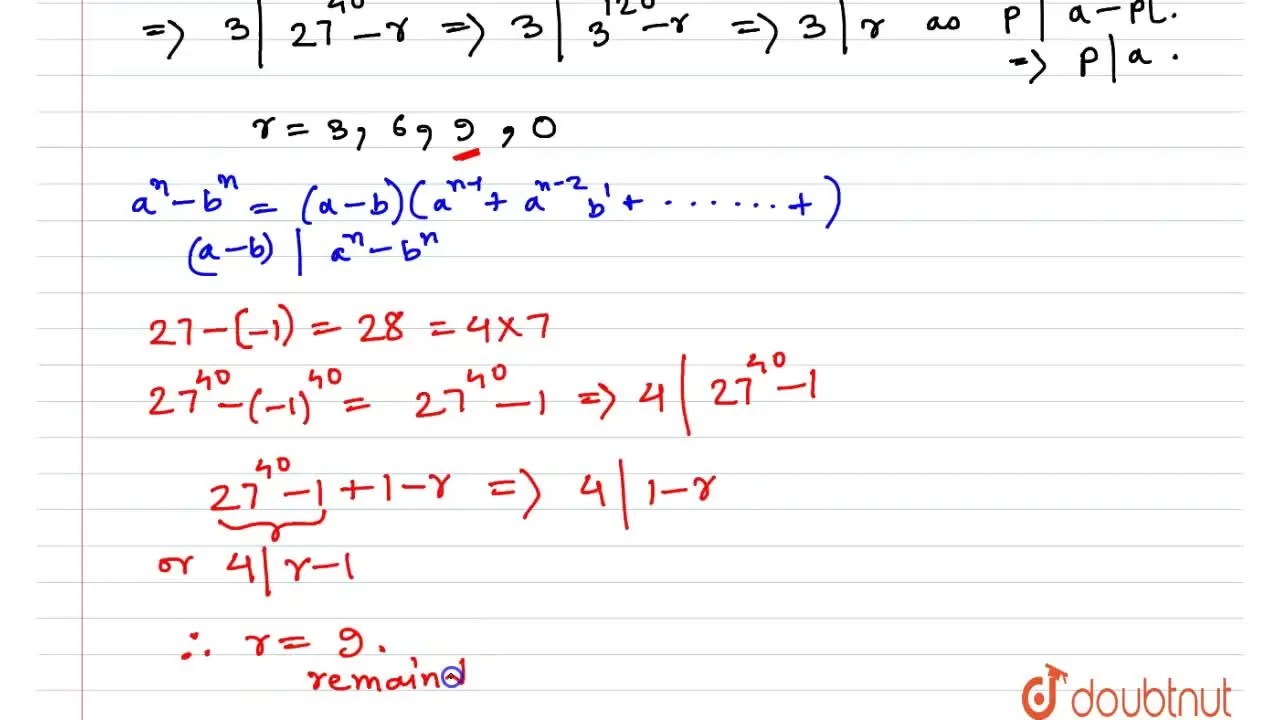 => 3 | 27^40 - r => 3 | 3^120 - r => 3 | r as p | a - pl.
=> p | a .
r = 3, 6, 9, 0
a^n - b^n = (a-b)(a^{n-1} + a^{n-2} b^1 + ....... + )
(a-b) | a^n - b^n
27 - (-1) = 28 = 4 × 7
27^40 - (-1)^40 = 27^40 - 1 => 4 | 27^40 - 1
27^40 - 1 + 1 - r => 4 | 1 - r
or 4 | r - 1
∴ r = 9.
remaind
doubtnut